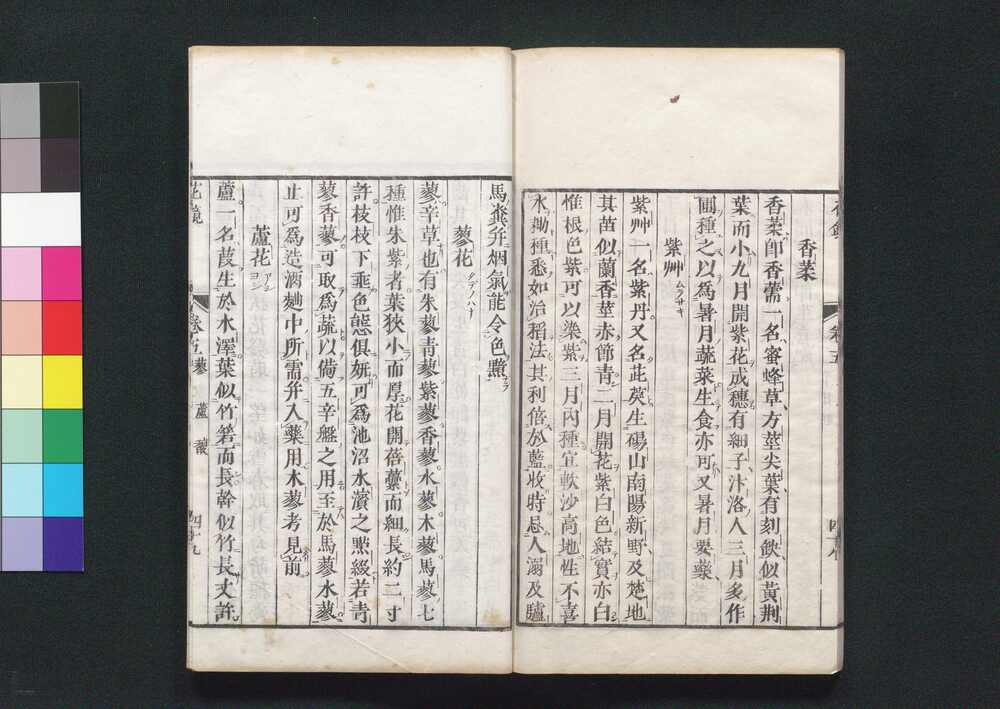 香葇
香葇卽香薷一名蜜蜂草方莖尖葉有刻欽似黃荆
葉而小九月開紫花成穗有細子汴洛人三月多作
圃種之以爲暑月蔬菜生食亦可又暑月要藥
紫艸 ムラサキ
紫艸一名紫丹又名茈莫生碭山南陽新野及楚地
其苗似蘭香莖赤節青二月開花紫白色結實亦白
惟根色紫可以染紫三月內種宜軟沙高地性不喜
水拗種悉如治稻法其利倍於藍收時忌人溺及驢
馬糞幷烟氣能令色黯
蓼花 タデノハナ
蓼辛草也有朱蓼青蓼紫蓼香蓼水蓼木蓼馬蓼七
種惟朱紫者葉狹小而厚花開蓓蘽而細長約二寸
許枝枝下垂色態俱妍可爲池沼水濱之點綴若青
蓼香蓼可取爲蔬以備五辛盤之用至於馬蓼水蓼
止可爲造酒麯中所需幷入藥用木蓼考見前
蘆花 アシ ヨシ
蘆一名葭生於水澤葉似竹箬而長幹似竹長丈許
花鏡 卷五 蓼 蘆